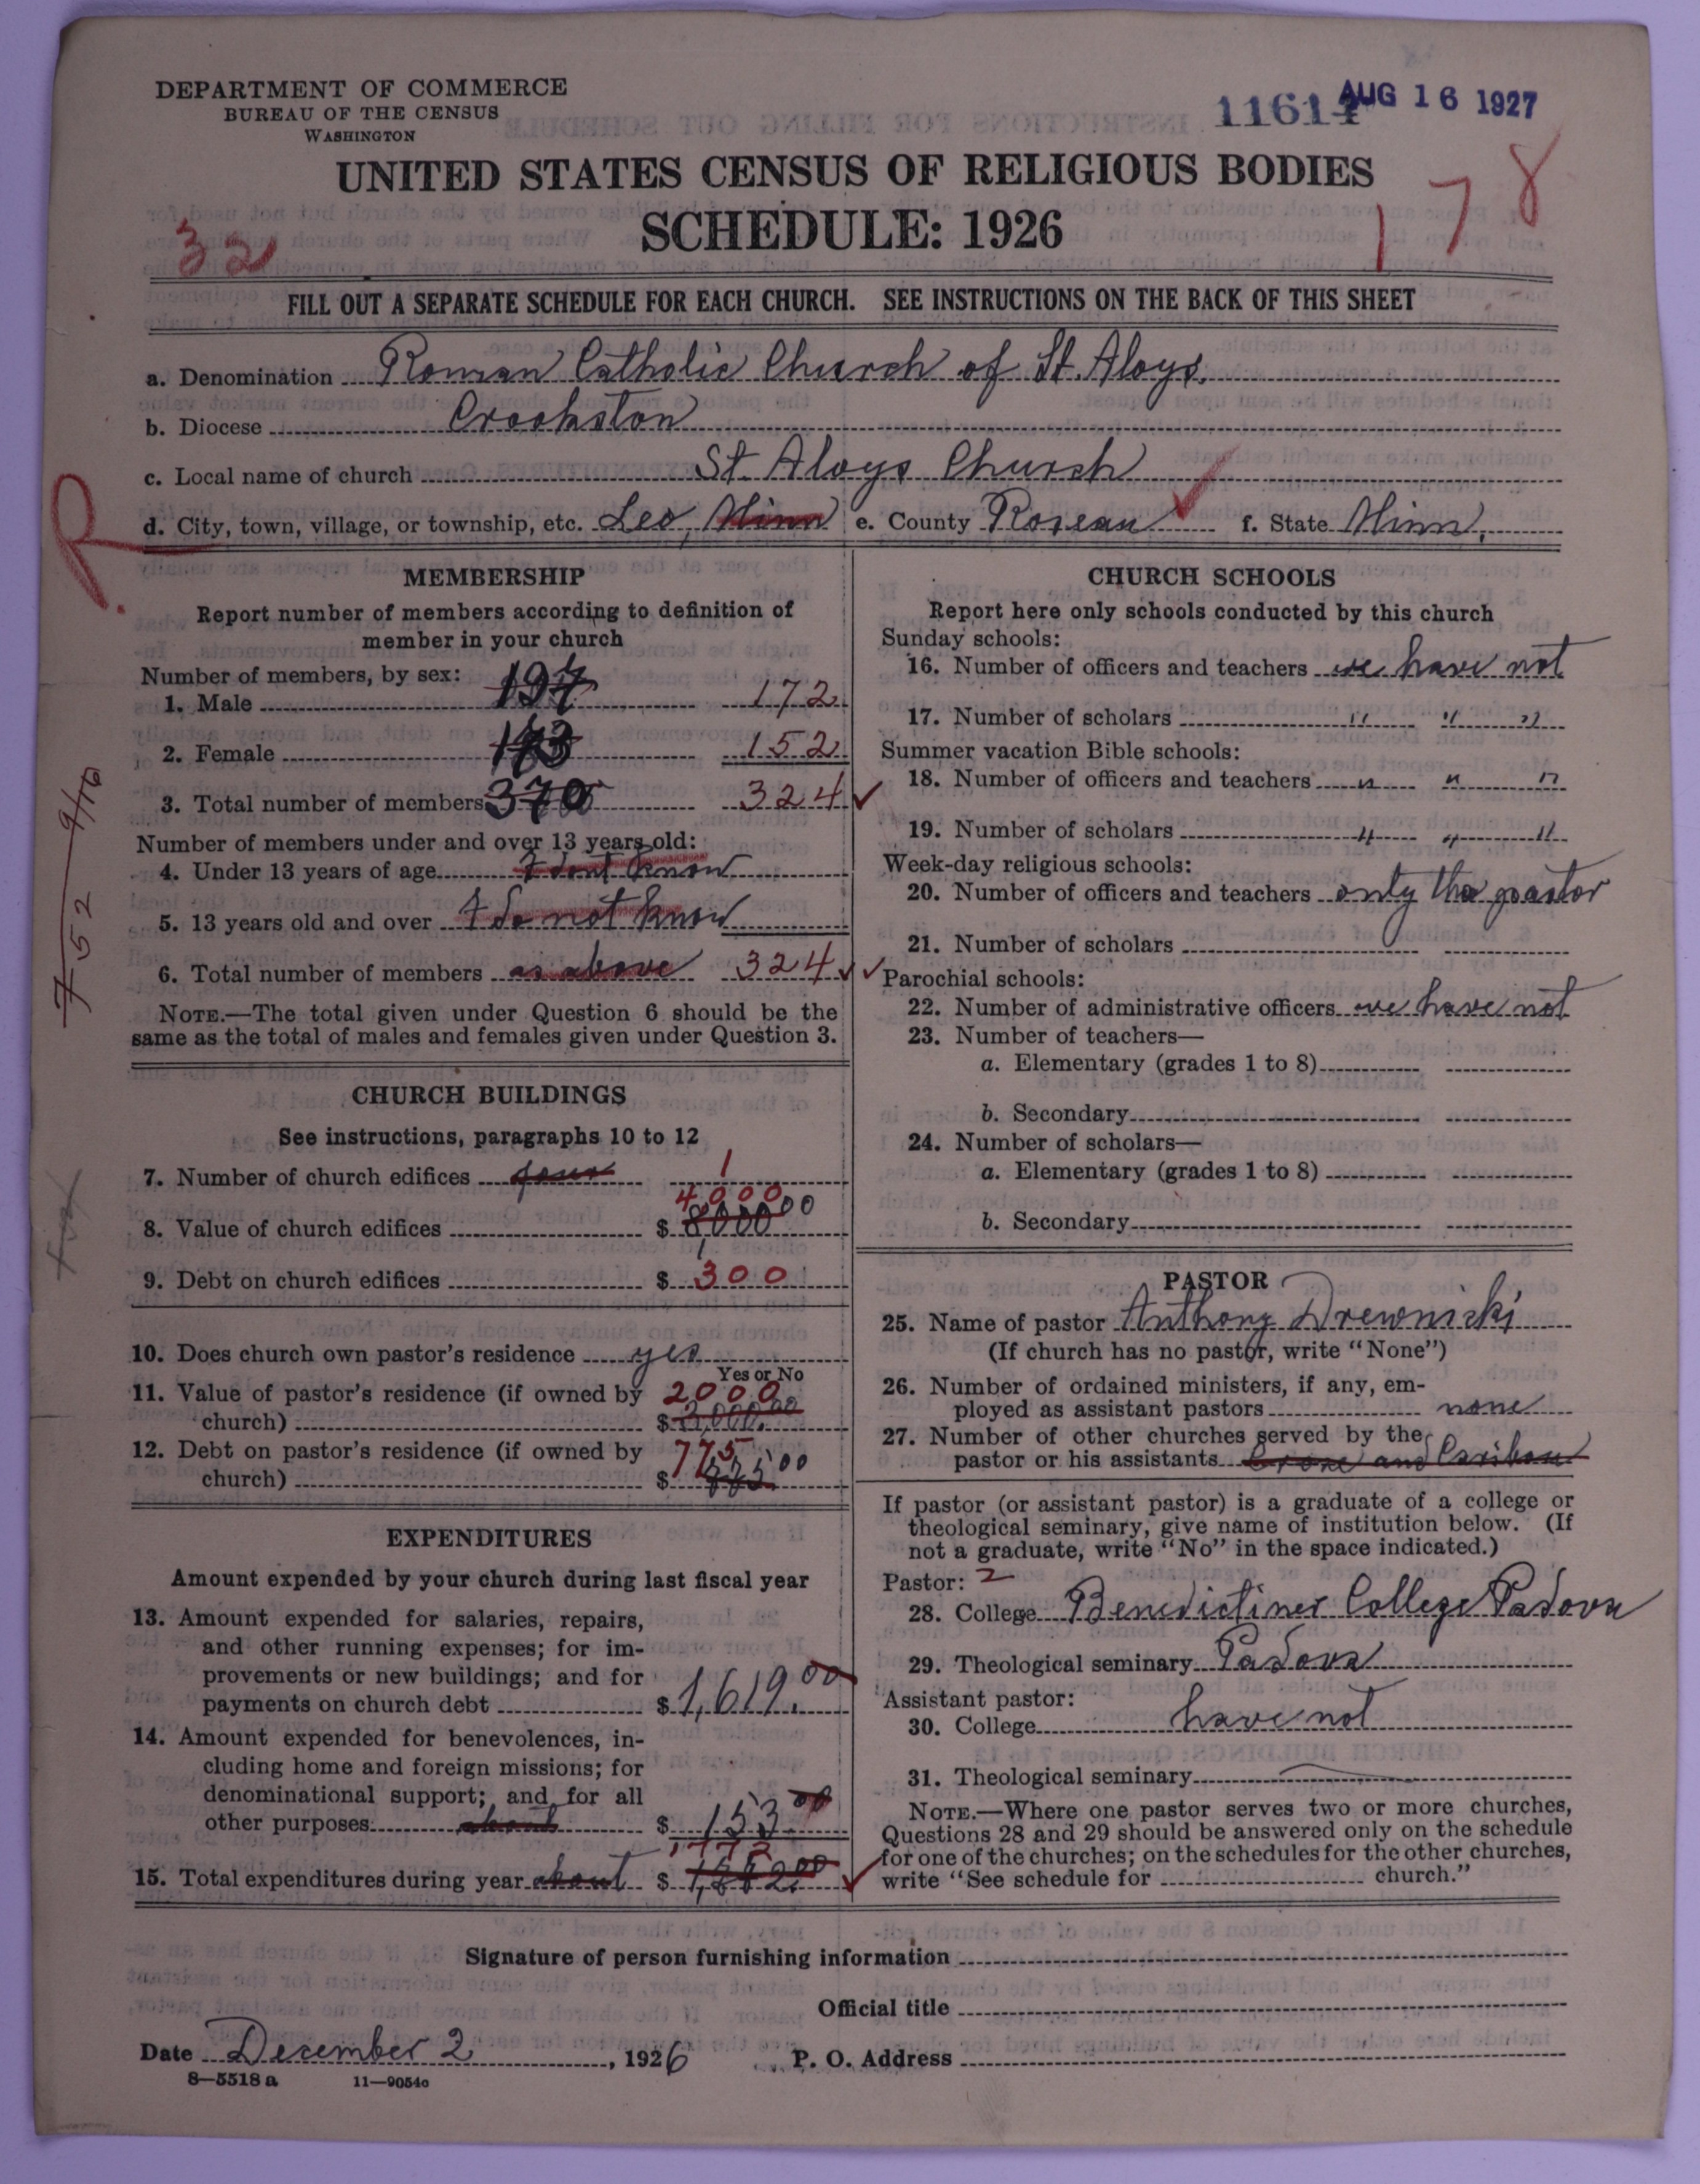 DEPARTMENT OF COMMERCE
BUREAU OF THE CENSUS
WASHINGTON
11614 AUG 16 1927
UNITED STATES CENSUS OF RELIGIOUS BODIES
SCHEDULE: 1926
32
178
FILL OUT A SEPARATE SCHEDULE FOR EACH CHURCH. SEE INSTRUCTIONS ON THE BACK OF THIS SHEET
a. Denomination Roman Catholic Church of St. Aloys.
b. Diocese Crookston
c. Local name of church St. Aloys Church
d. City, town, village, or township, etc. Leo, Minn e. County Roseau f. State Minn.
R.
MEMBERSHIP
Report number of members according to definition of
member in your church
Number of members, by sex:
1. Male 197 172
2. Female 173 152
3. Total number of members 370 324
Number of members under and over 13 years old:
4. Under 13 years of age I dont know
5. 13 years old and over I do not know
6. Total number of members as above 324
NOTE.—The total given under Question 6 should be the
same as the total of males and females given under Question 3.
752 9/10
CHURCH BUILDINGS
See instructions, paragraphs 10 to 12
7. Number of church edifices four 1
8. Value of church edifices $ 8000 00 4000
9. Debt on church edifices $ 300
10. Does church own pastor's residence yes
Yes or No
11. Value of pastor's residence (if owned by
church) $ 3,000.00 2000
12. Debt on pastor's residence (if owned by
church) $ 00 775
EXPENDITURES
Amount expended by your church during last fiscal year
13. Amount expended for salaries, repairs,
and other running expenses; for im-
provements or new buildings; and for
payments on church debt $ 1,619.00
14. Amount expended for benevolences, in-
cluding home and foreign missions; for
denominational support; and for all
other purposes about $ 153 00
15. Total expenditures during year about $ 1772
CHURCH SCHOOLS
Report here only schools conducted by this church
Sunday schools:
16. Number of officers and teachers we have not
17. Number of scholars " " "
Summer vacation Bible schools:
18. Number of officers and teachers " " "
19. Number of scholars " " "
Week-day religious schools:
20. Number of officers and teachers only the pastor
21. Number of scholars
Parochial schools:
22. Number of administrative officers we have not
23. Number of teachers—
a. Elementary (grades 1 to 8)
b. Secondary
24. Number of scholars—
a. Elementary (grades 1 to 8)
b. Secondary
PASTOR
25. Name of pastor Anthony Drewnicki
(If church has no pastor, write "None")
26. Number of ordained ministers, if any, em-
ployed as assistant pastors none
27. Number of other churches served by the
pastor or his assistants and Caribou
If pastor (or assistant pastor) is a graduate of a college or
theological seminary, give name of institution below. (If
not a graduate, write "No" in the space indicated.)
Pastor: 2
28. College Benedictiner College Padova
29. Theological seminary Padova
Assistant pastor:
30. College have not
31. Theological seminary
NOTE.—Where one pastor serves two or more churches,
Questions 28 and 29 should be answered only on the schedule
for one of the churches; on the schedules for the other churches,
write "See schedule for church."
Signature of person furnishing information
Official title
Date December 2, 1926 P. O. Address
8—5518 a 11—9054c